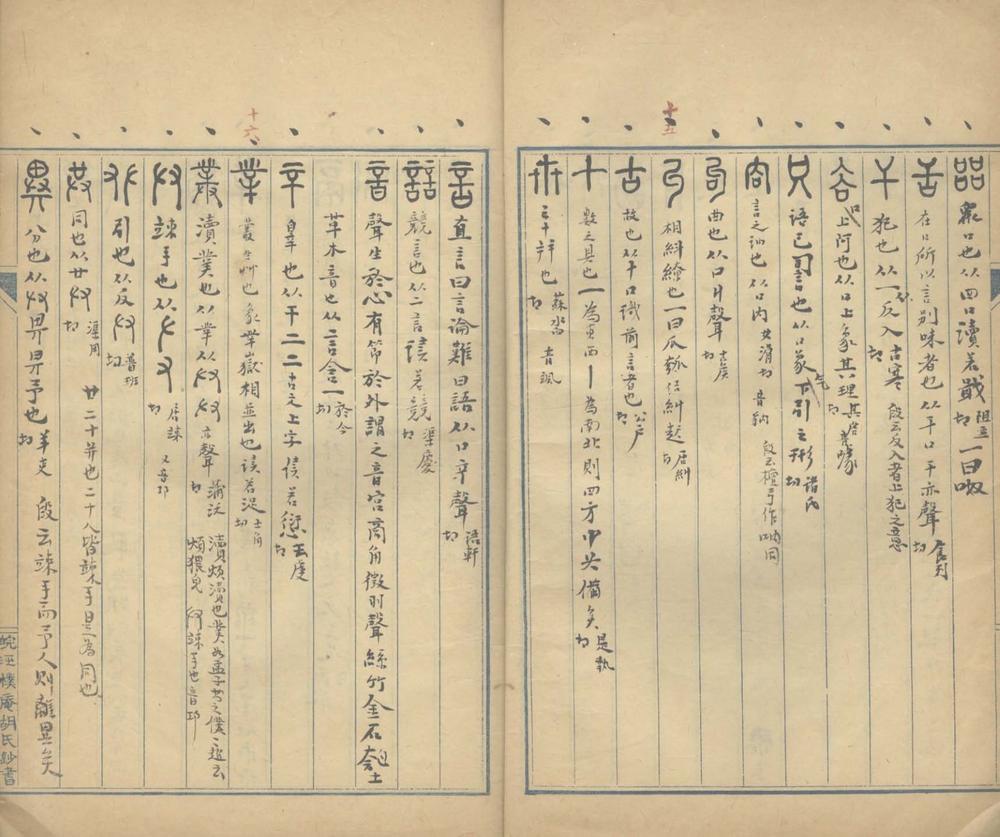 㗊 衆口也从四口讀若戢 阻立切 一曰呶
舌 在口所以言別味者也从干口干亦聲 食列切
干 犯也从一从反入 古寒切 段云反入者上犯之意
谷 口上阿也从口上象其理 其虐切
只 語已䛐也从口象气下引之形 諸氏切
㕯 言之訥也从口内 女滑切 音訥 段云檀弓作呐同
句 曲也从口丩聲 古矦切
丩 相糾繚也一曰瓜瓠结丩起 居糾切
古 故也从十口識前言者也 公户切
十 數之具也一為東西丨為南北則四方中央備矣 是執切
卅 三十并也 蘇沓切 音颯
十五
言 直言曰言論難曰語从口䇂聲 語軒切
誩 競言也从二言讀若競 渠慶切
音 聲生於心有節於外謂之音宫商角徵羽聲絲竹金石匏土
革木音也从言含一 於今切
䇂 辠也从干二二古文上字讀若愆 去虔切
丵 叢生艸也象丵嶽相並出也讀若浞 士角切
菐 瀆菐也从丵从𠬞𠬞亦聲 蒲沃切 瀆煩瀆也菐如孟子書之僕僕趙云煩猥皃 𠬞竦手也音邛
𠬞 竦手也从𠂇又 居竦切 又音邛
𠬜 引也从反𠬞 普班切
共 同也从廿𠬞 渠用切 廿二十并也二十人皆竦手是為同也
異 分也从𠬞畀畀予也 羊吏切 段云竦手而予人則離異矣
十六
皖江樸庵胡氏鈔書